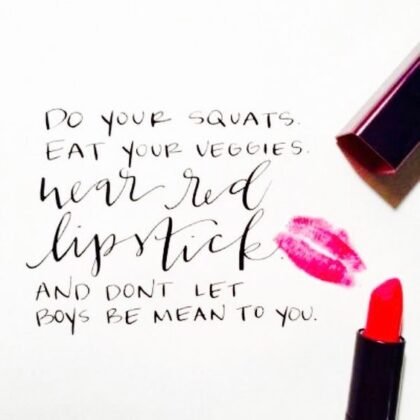 DO YOUR SQUATS.
EAT YOUR VEGGIES.
wear red
lipstick.
AND DONT LET
BOYS BE MEAN TO YOU.